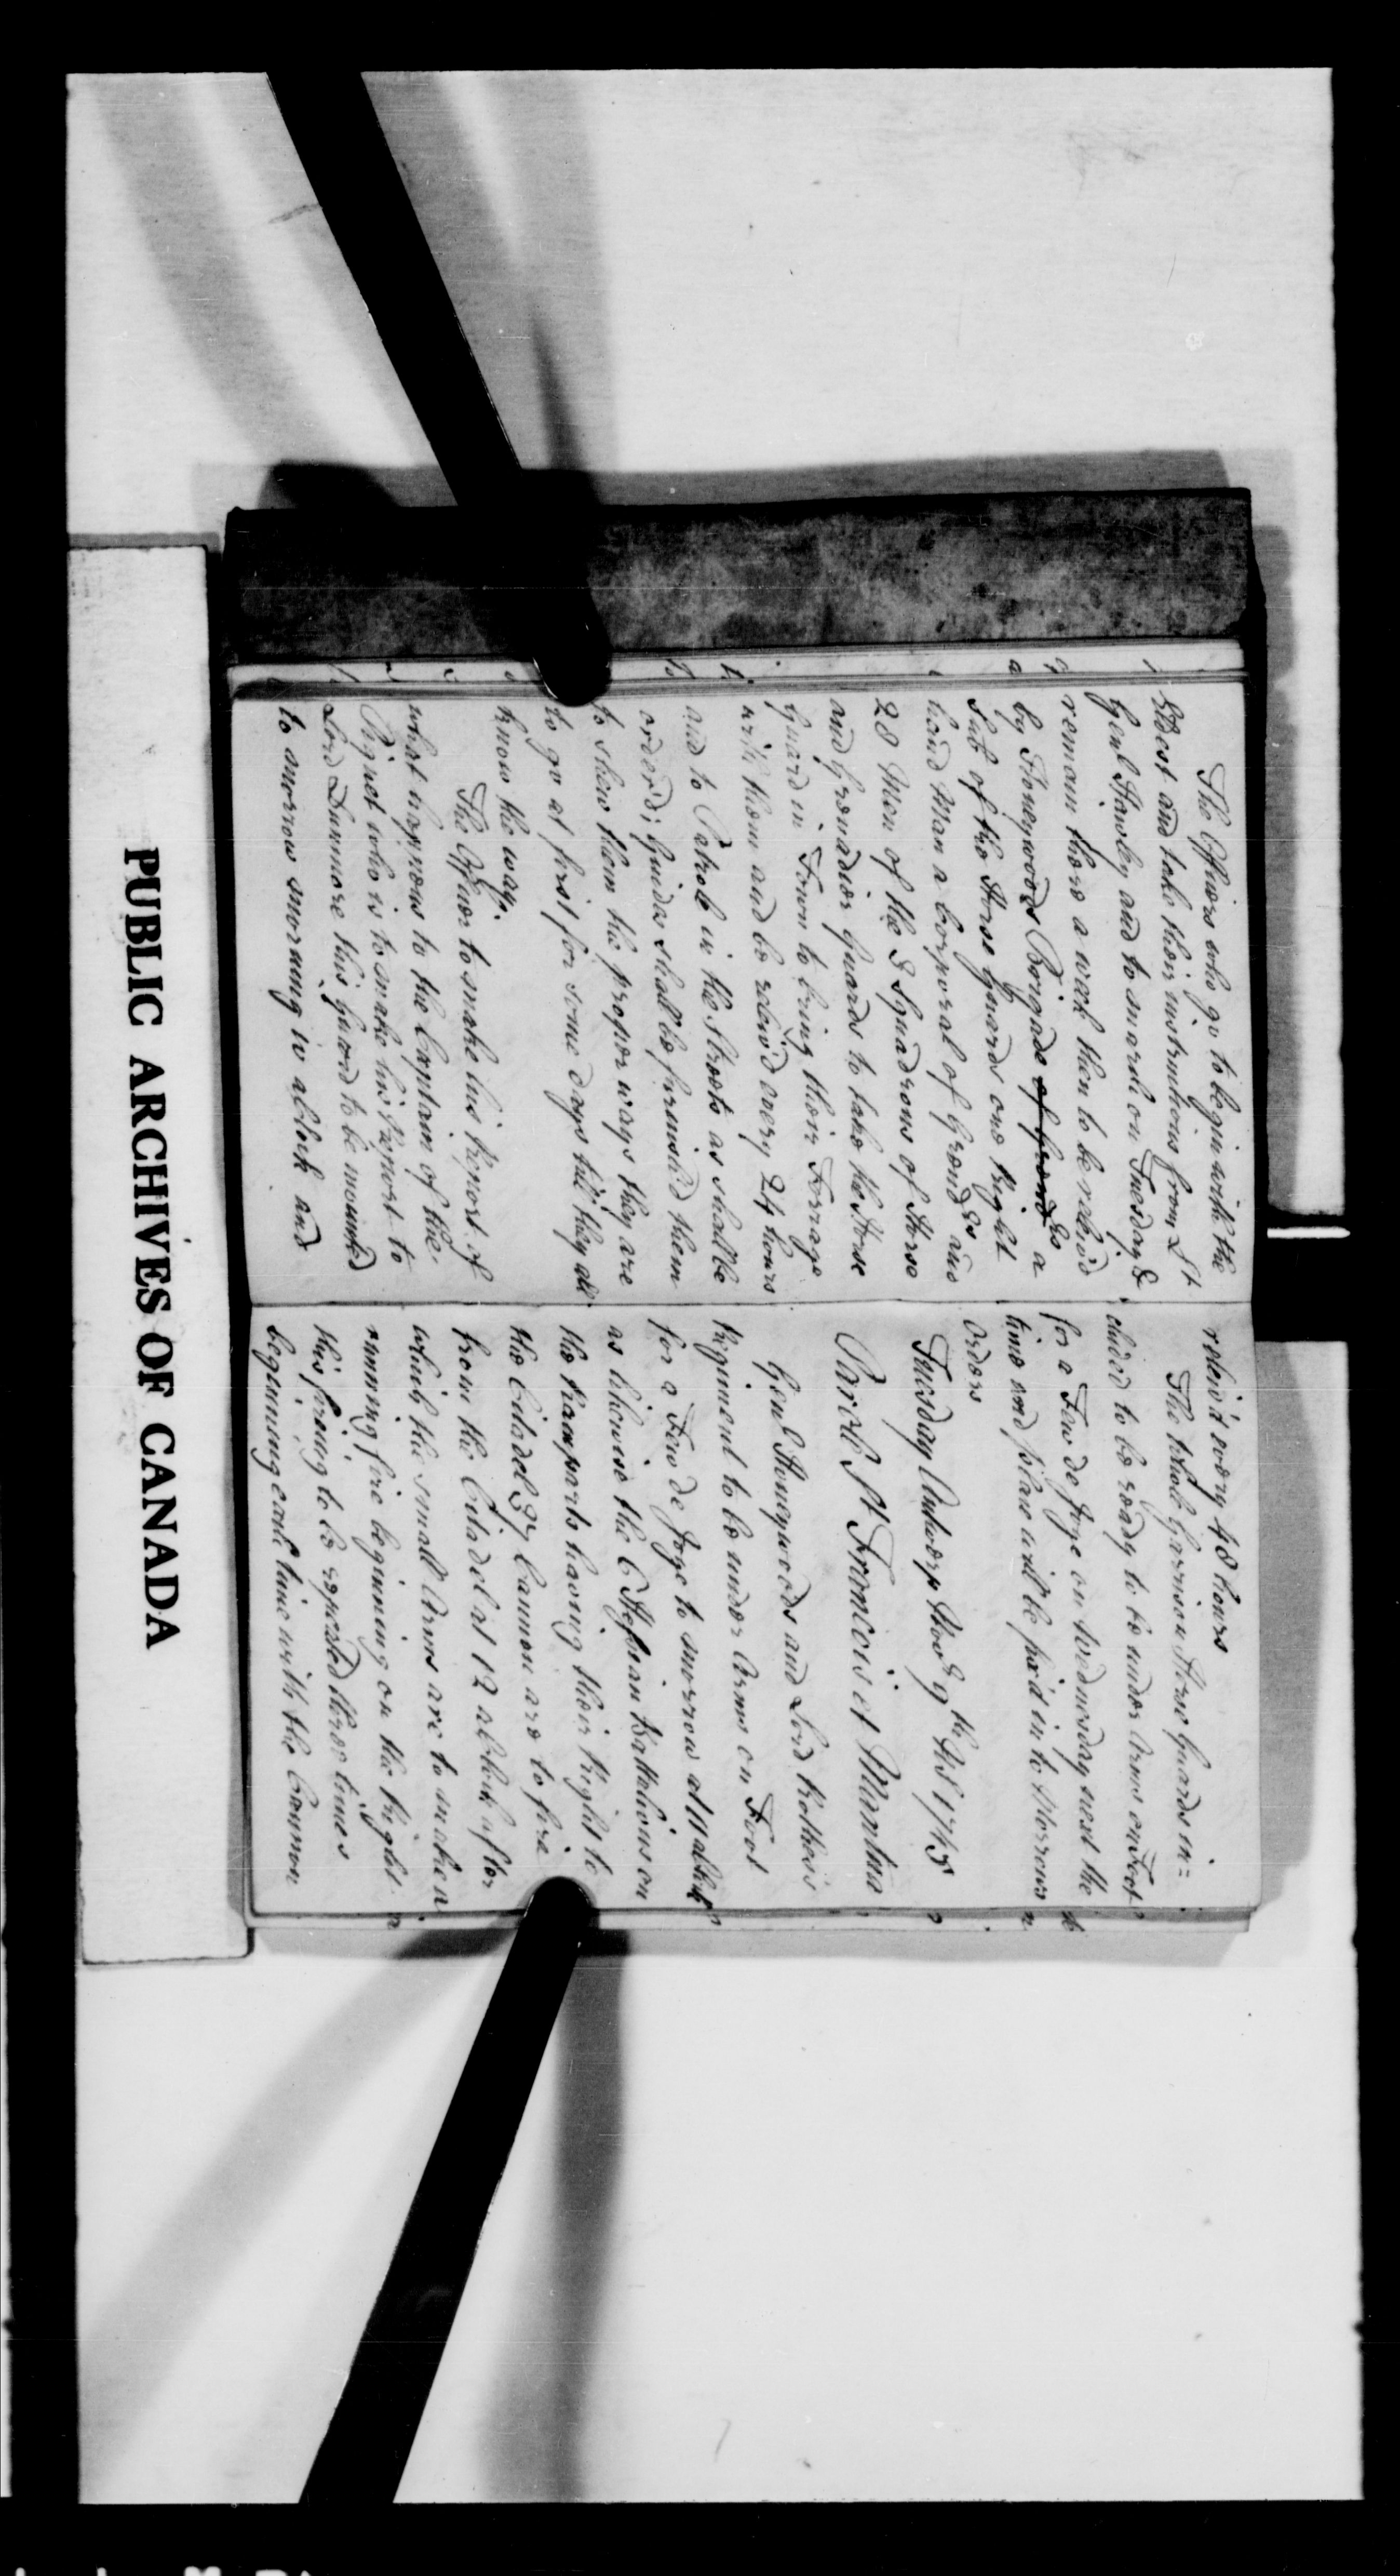 The Officers who go to begin with the
Rest and take their instructions from Lt
Genl Hawley and to march on Tuesday &
remain there a week then to be reliv'd
by Honeywoods Brigade of Grends a
Sub of the Horse Guards one Right
hand Man a Corporal of Grends and
28 Men of the 8 Squadrons of Horse
and Grenadier Guards to take the Horse
Guard in Town to bring their Forrage
with them and be reliv'd every 24 hours
and to Patrole in the Streets as shall be
order'd; Guides shall be furnish'd them
to shew them the proper ways they are
to go at first for some days till they all
know the way.
The Officer to make his Report of
what happens to the Captain of the
Piquet who is to make his Report to
Lord Dunmore this Guard to be mounted
to morrow morning 10 a Clock and
reliv'd every 48 hours
The whole Garrison Horse Guards in=
cluded to be ready to be under Arms on Foot
for a Few de Joye on Wednesday next the
time and place will be fix'd in to Morrows
Orders
Tuesday Antwerp Novr 9th NS 1743
Parole St Francois et Mantua
Genl Honeywoods and Lord Rothes's
Regiment to be under Arms on Foot
for a Few de Joye to morrow at 11 a Clock
as likewise the 6 Hessian Battalions on
the Ramparts having their Right to
the Citadel 37 Cannon are to fire
from the Citadel at 12 a Clock after
which the small Arms are to make a
running fire begining on the Right
this firing to be repeated three times
begining each time with the Cannon
PUBLIC ARCHIVES OF CANADA